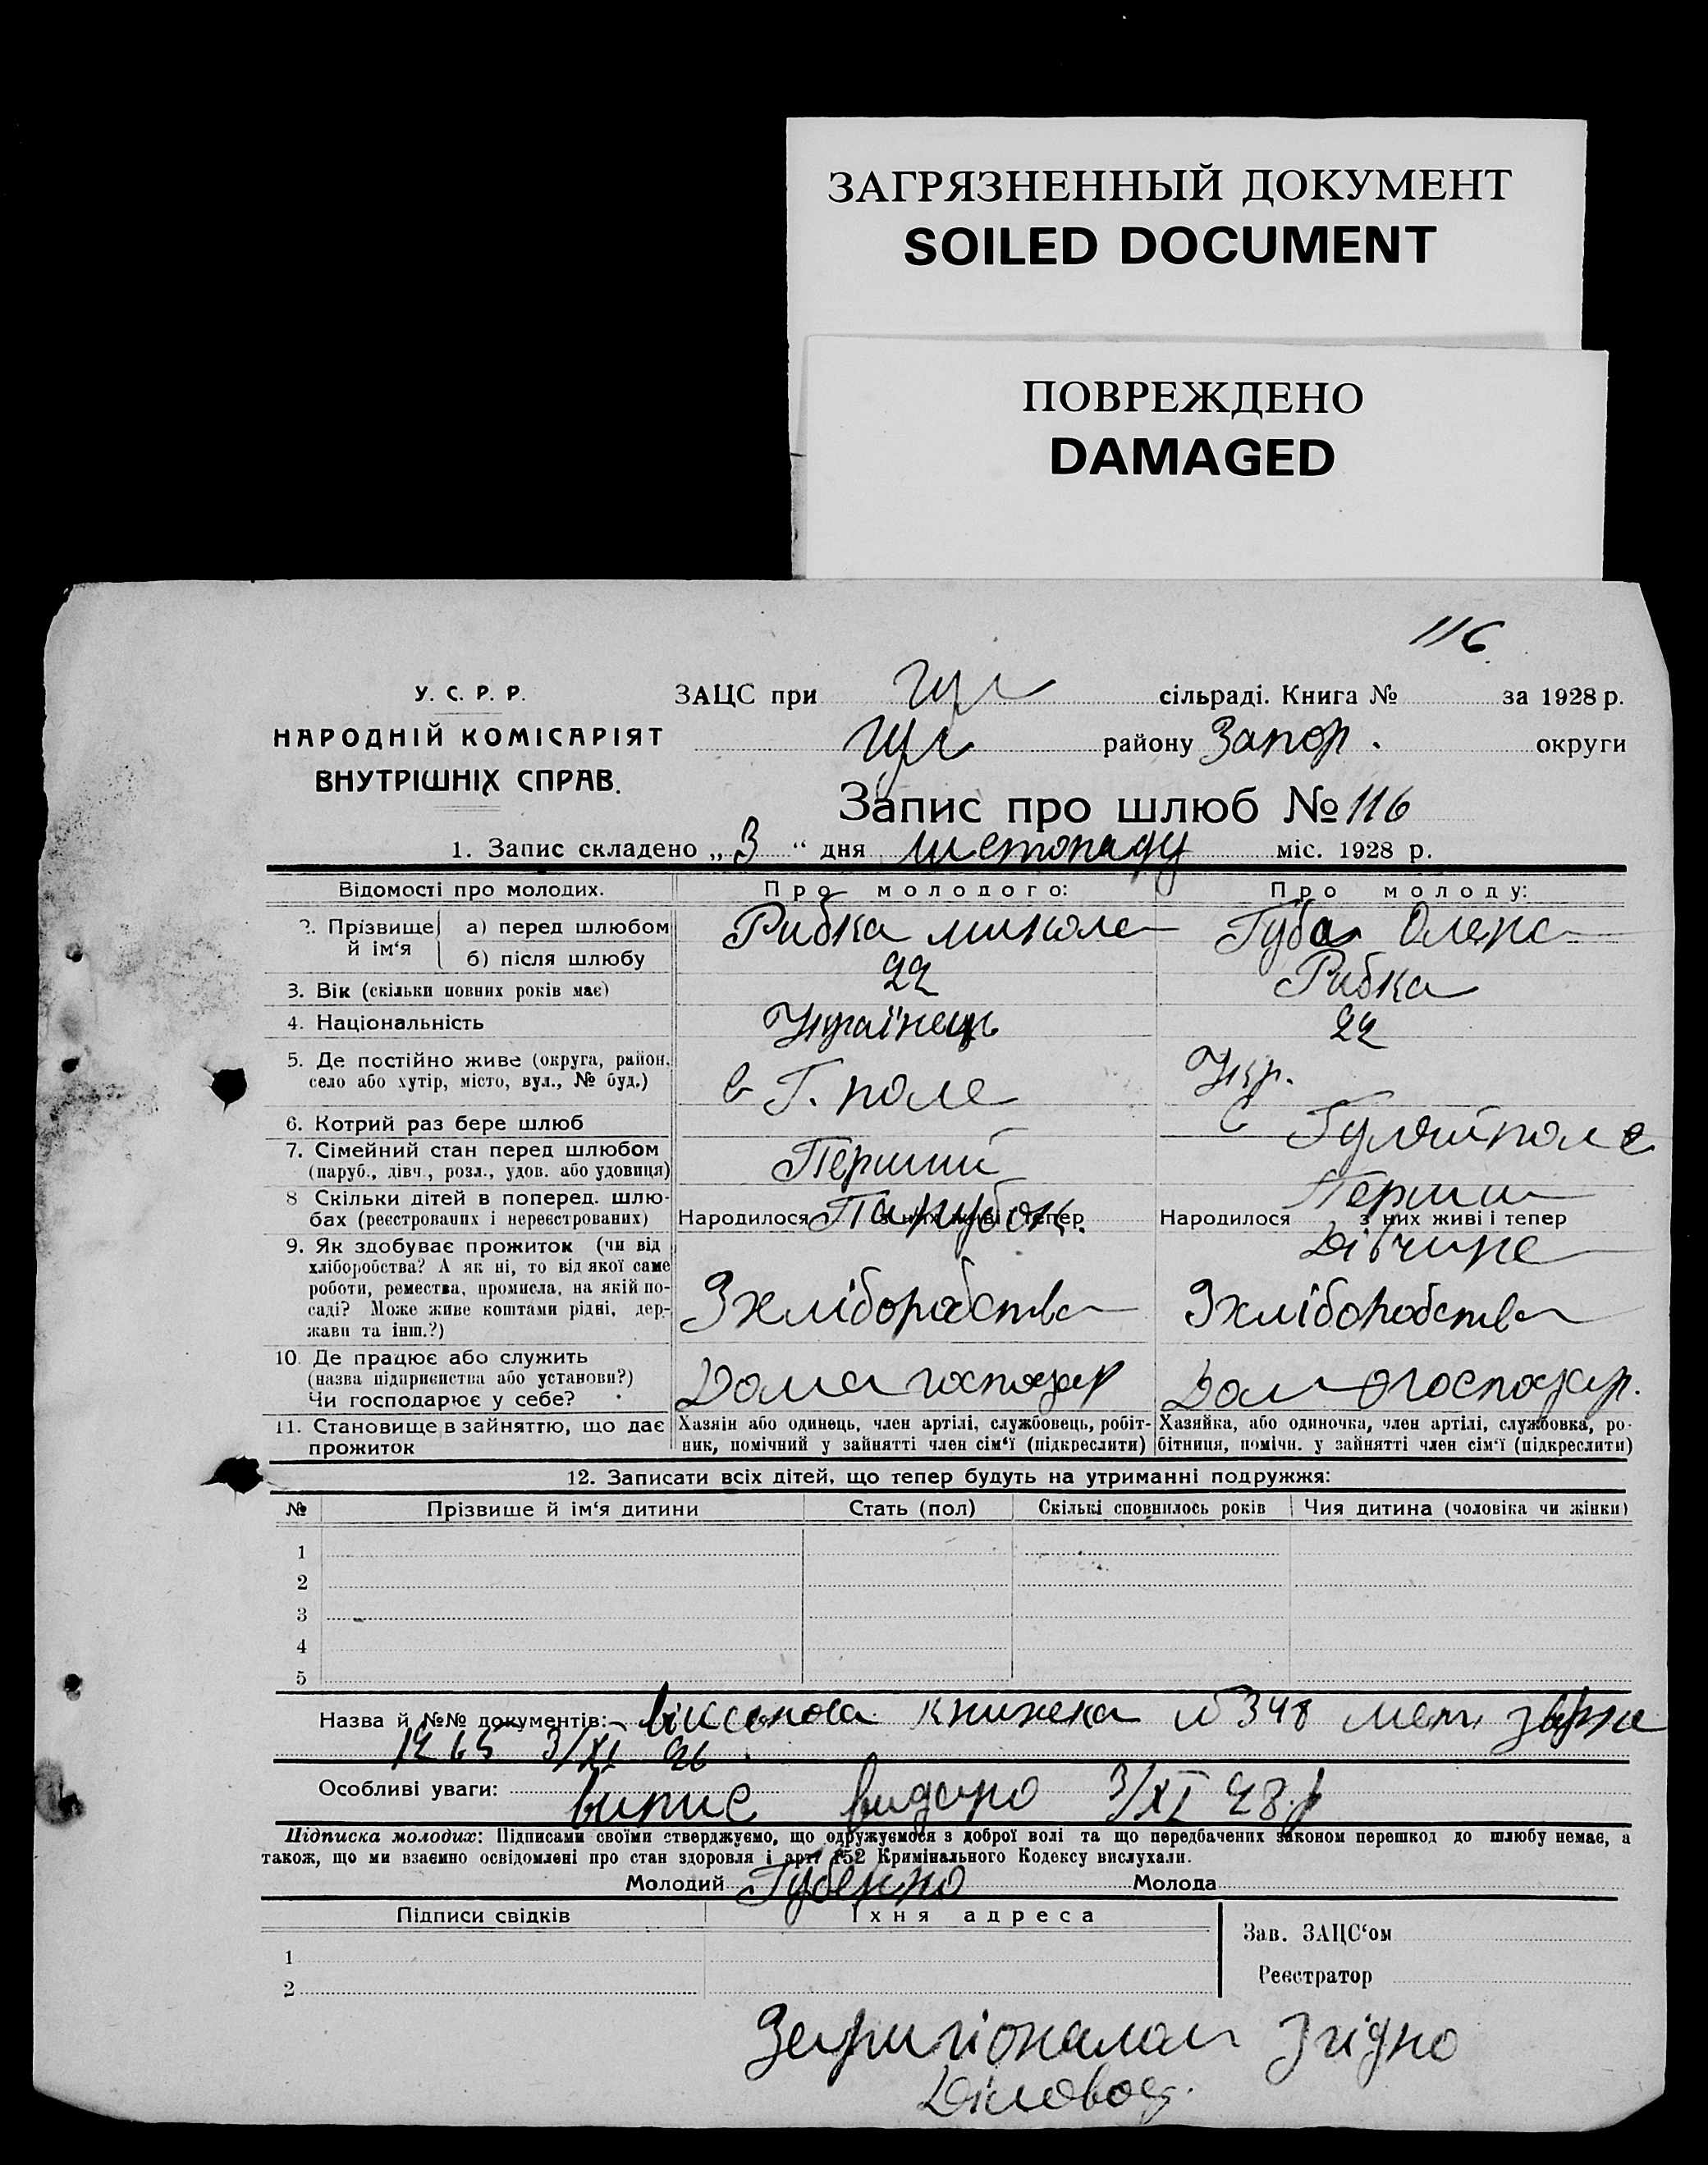 ЗАГРЯЗНЕННЫЙ ДОКУМЕНТ
SOILED DOCUMENT
ПОВРЕЖДЕНО
DAMAGED
116
У. С. Р. Р.
НАРОДНІЙ КОМІСАРІЯТ
ВНУТРІШНІХ СПРАВ.
ЗАЦС при Гул сільраді. Книга № за 1928 р.
Гул району Запор. округи
Запис про шлюб № 116
1. Запис складено „ 3 “ дня листопаду міс. 1928 р.
Відомості про молодих. Про молодого: Про молоду:
2. Прізвище й ім‘я а) перед шлюбом Рибка Микола Губа Олена
б) після шлюбу Рибка
3. Вік (скільки повних років має) 22 22
4. Національність Українець Укр.
5. Де постійно живе (округа, район, село або хутір, місто, вул., № буд.) с Г. поле с Гуляйполе
6. Котрий раз бере шлюб Перший Перши
7. Сімейний стан перед шлюбом
(паруб., дівч., розл., удов. або удовиця) Парубок. Дівчина
8 Скільки дітей в поперед. шлю-
бах (реєстрованих і нереєстрованих) Народилося з них живі і тепер Народилося з них живі і тепер
9. Як здобуває прожиток (чи від
хліборобства? А як ні, то від якої саме
роботи, ремества, промисла, на якій по-
саді? Може живе коштами рідні, дер-
жави та інш.?) Зхліборобства Зхліборобства
10. Де працює або служить
(назва підприєнства або установи?)
Чи господарює у себе? Дома господар Дом господар.
11. Становище в зайняттю, що дає
прожиток
Хазяін або одинець, член артілі, службовець, робіт-
ник, помічний у зайнятті член сім‘ї (підкреслити)
Хазяйка, або одиночка, член артілі, службовка, ро-
бітниця, помічн. у зайнятті член сім‘ї (підкреслити)
12. Записати всіх дітей, що тепер будуть на утриманні подружжя:
№ Прізвище й ім‘я дитини Стать (пол) Скількі сповнилось років Чия дитина (чоловіка чи жінки)
1
2
3
4
5
Назва й №№ документів: книжка № 348
3/XI
Особливі уваги: випис видано 3/XI 28.р
Підписка молодих: Підписами своїми стверджуємо, що одружуємося з доброї волі та що передбачених законом перешкод до шлюбу немає, а
також, що ми взаємно освідомлені про стан здоровля і арт. 152 Кримінального Кодексу вислухали.
Молодий Губенко Молода
Підписи свідків Їхня адреса
1
2
Зав. ЗАЦС‘ом
Реєстратор
Зоригіоналом Згідно
Діловод.